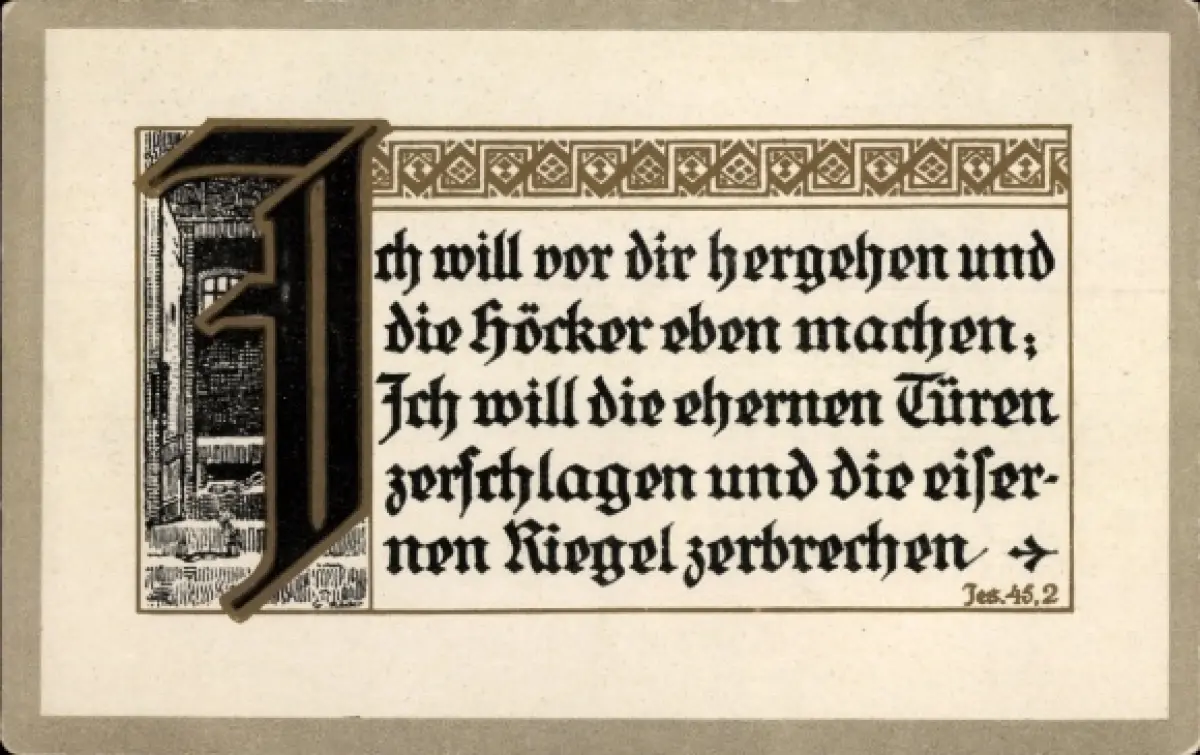 Ich will vor dir hergehen und
die Höcker eben machen;
Ich will die ehernen Türen
zerschlagen und die eiser-
nen Riegel zerbrechen
Jes. 45, 2